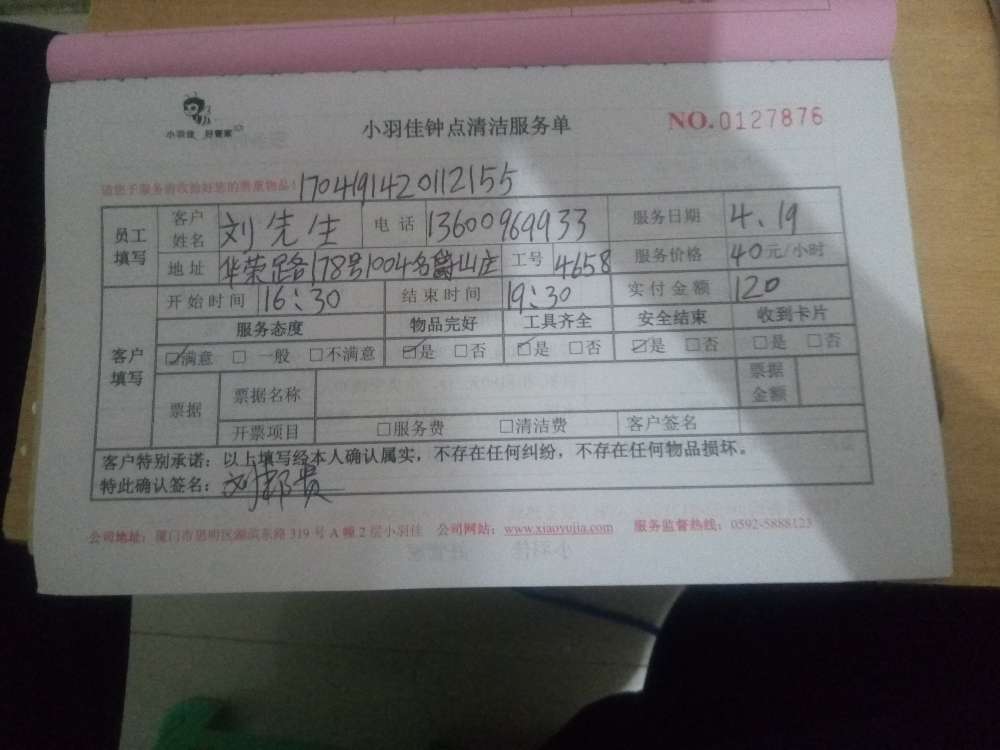 小羽佳 好管家
小羽佳钟点清洁服务单
NO.0127876
请您于服务前收拾好您的贵重物品!
1704191420112155
员工填写 客户姓名 刘先生 电话 13600969933 服务日期 4、19
地址 华荣路178号1004名爵山庄 工号 4658 服务价格 40元/小时
客户填写 开始时间 16:30 结束时间 19:30 实付金额 120
服务态度 物品完好 工具齐全 安全结束 收到卡片
☑满意 □一般 □不满意 ☑是 □否 ☑是 □否 ☑是 □否 □是 □否
票据 票据名称 票据金额
开票项目 □服务费 □清洁费 客户签名
客户特别承诺:以上填写经本人确认属实,不存在任何纠纷,不存在任何物品损坏。
特此确认签名:
公司地址:厦门市思明区湖滨东路 319 号 A 幢 2 层小羽佳 公司网站:www.xiaoyujia.com 服务监督热线:0592-5888123